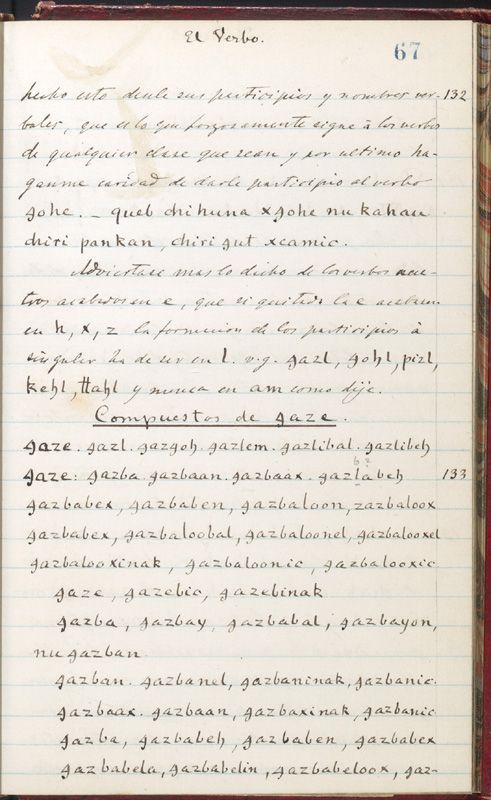 El Verbo.
67
hecho esto deule sus participios y nombres ver- 132
bales, que es lo que forzosamente sigue à los verbos
de qualquier clase que sean y por ultimo ha-
ganme caridad de darle participio al verbo
gohe. – queb chihuna xgohe nu kahau
chiri pankan, chiri gut xcamic.
Adviertase mas lo dicho de los verbos neu-
tros acabados en e, que si quitada la e acaban
en h, x, z la formacion de los participios à
singular ha de ser en l. v.g. gazl, gohl, pizl,
kehl, ttahl y nunca en am como dije.
Compuestos de gaze.
gaze. gazl. gazgoh. gazlem. gazlibal. gazlibeh
b?
gaze: gazba. gazbaan. gazbaax. gazlabeh 133
gazbabex, gazbaben, gazbaloon, zazbaloox
gazbabex, gazbaloobal, gazbaloonel, gazbalooxel
gazbalooxinak, gazbaloonic, gazbalooxic
gaze, gazebic, gazebinak
gazba, gazbay, gazbabal, gazbayon,
nu gazban
gazban. gazbanel, gazbaninak, gazbanic.
gazbaax. gazbaan, gazbaxinak, gazbanic
gazba, gazbabeh, gazbaben, gazbabex
gazbabela, gazbabelin, gazbabeloox, gaz-